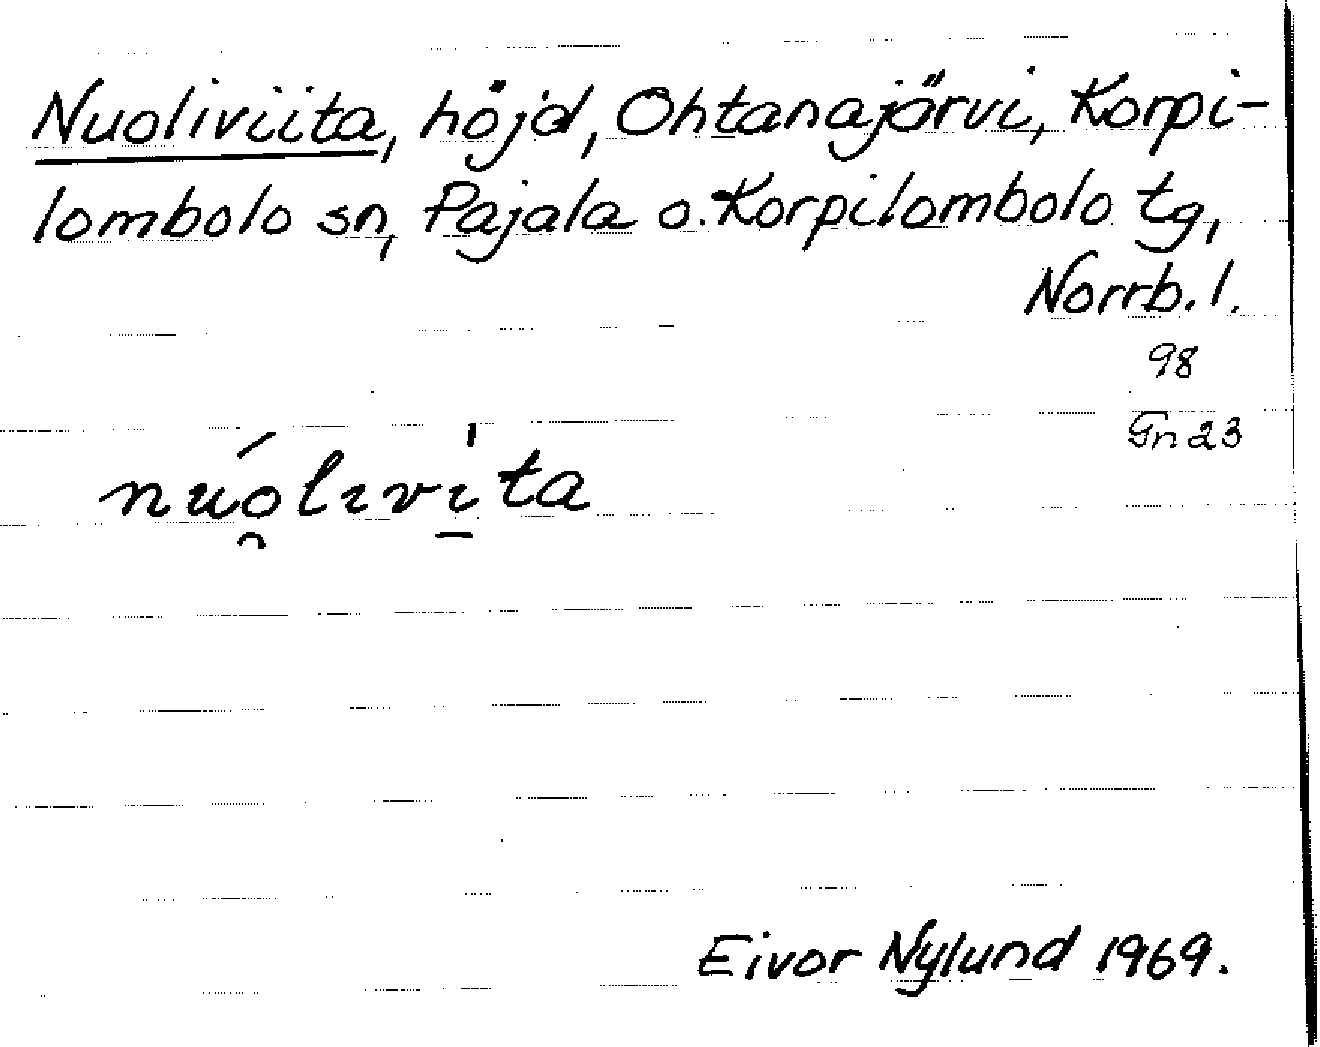 Nuoliviita, höjd, Ohtanajärvi, Korpi-
lombolo sn, Pajala o. Korpilombolo tg,
Norrb. l.
98
Gn 23
nuó̯livi̱̍ta
Eivor Nylund 1969.